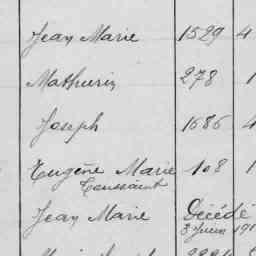 Jean Marie 1529 4
Mathurin 278 1
Joseph 1686 4
Eugène Marie 108 1
Toussaint
Jean Marie Décédé
3 Juin 191